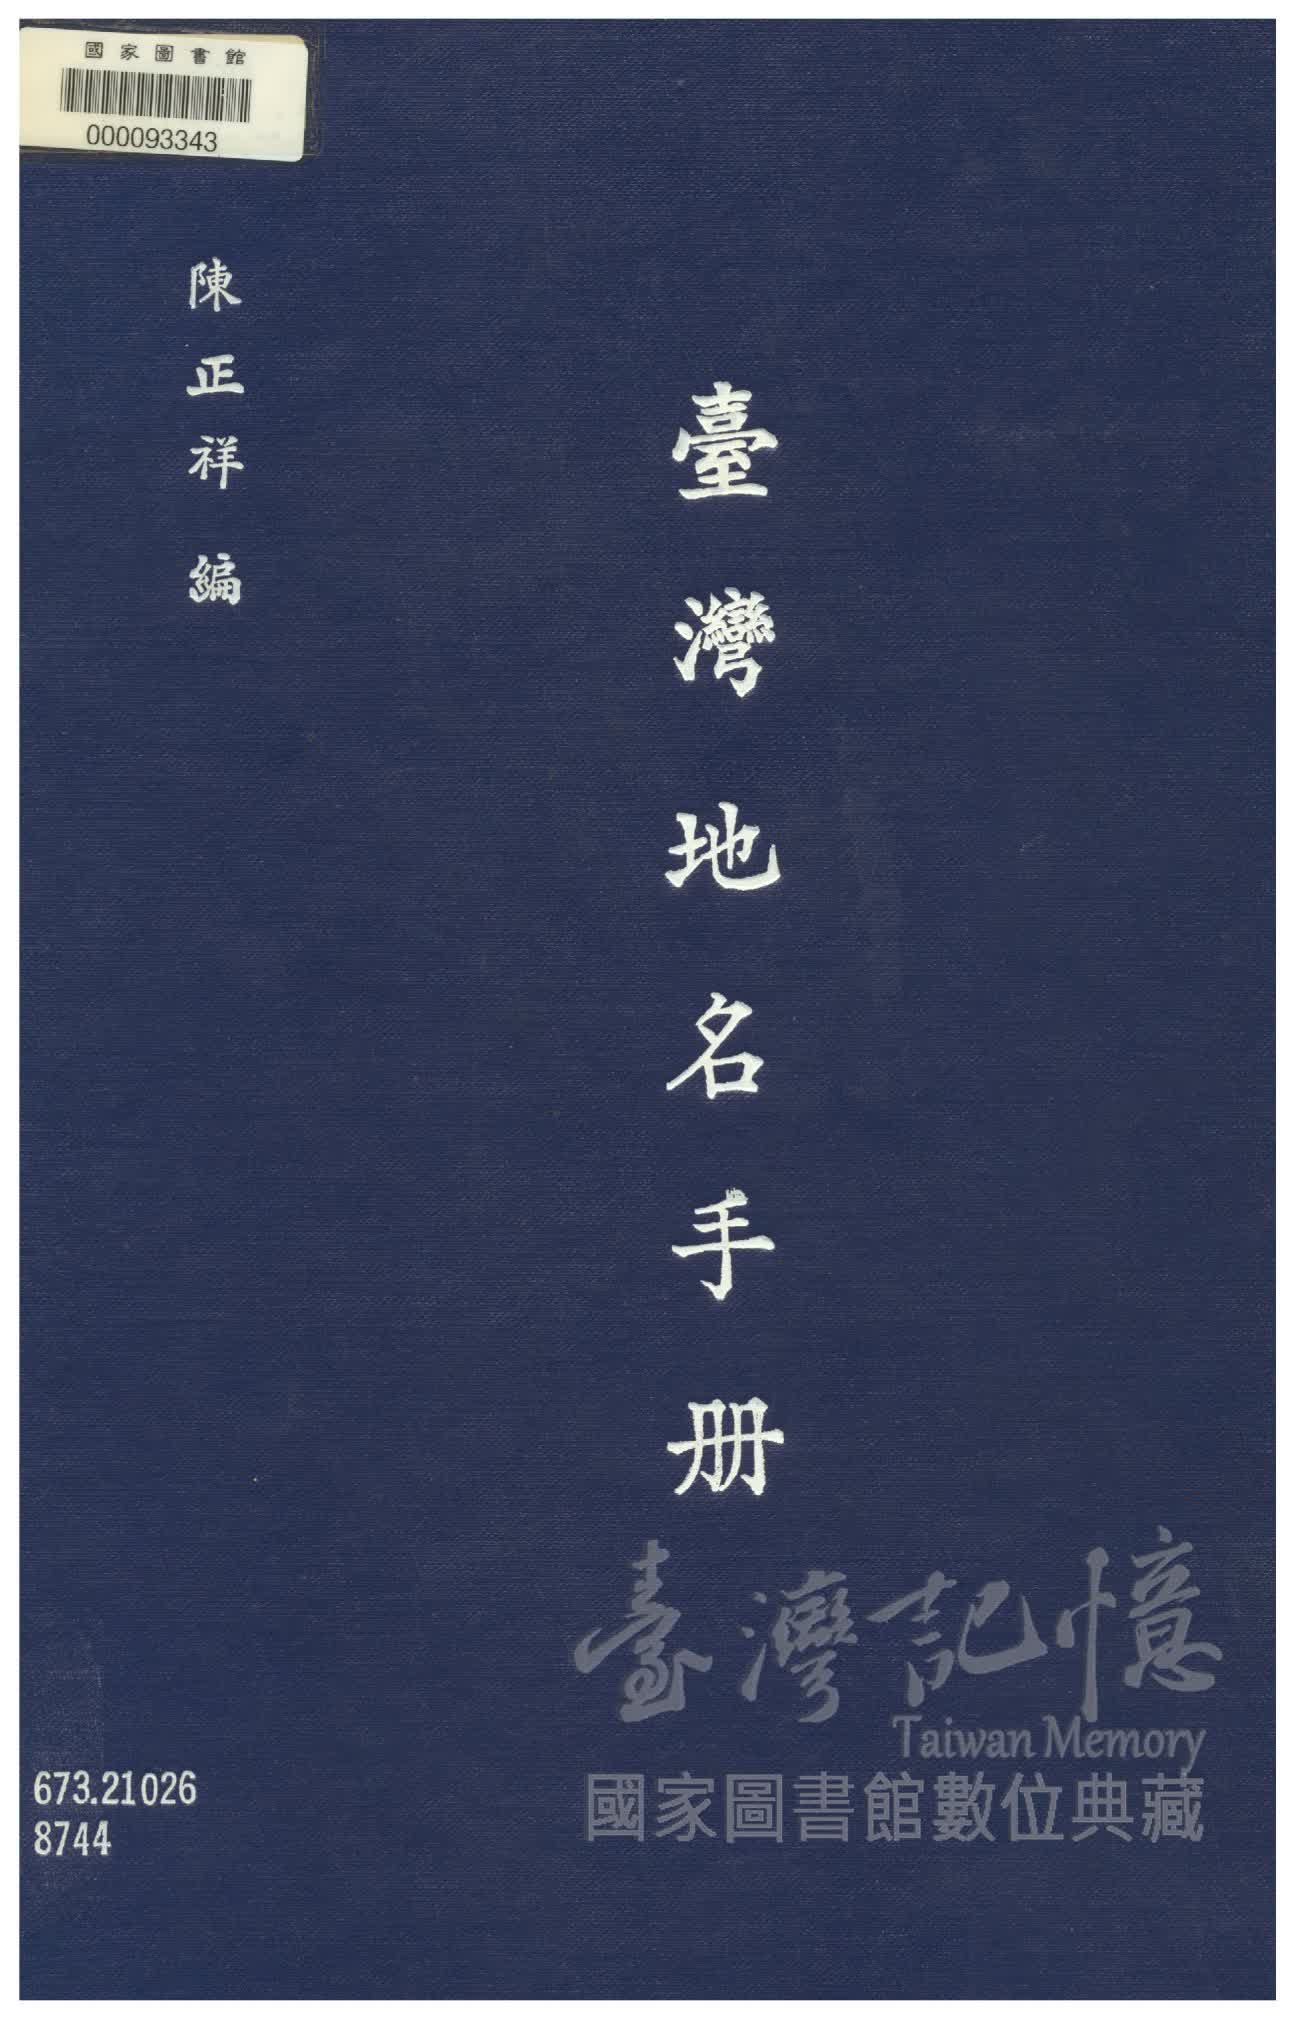 國家圖書館
000093343
臺灣地名手册
陳正祥 編
臺灣記憶
Taiwan Memory
國家圖書館數位典藏
673.21026
8744